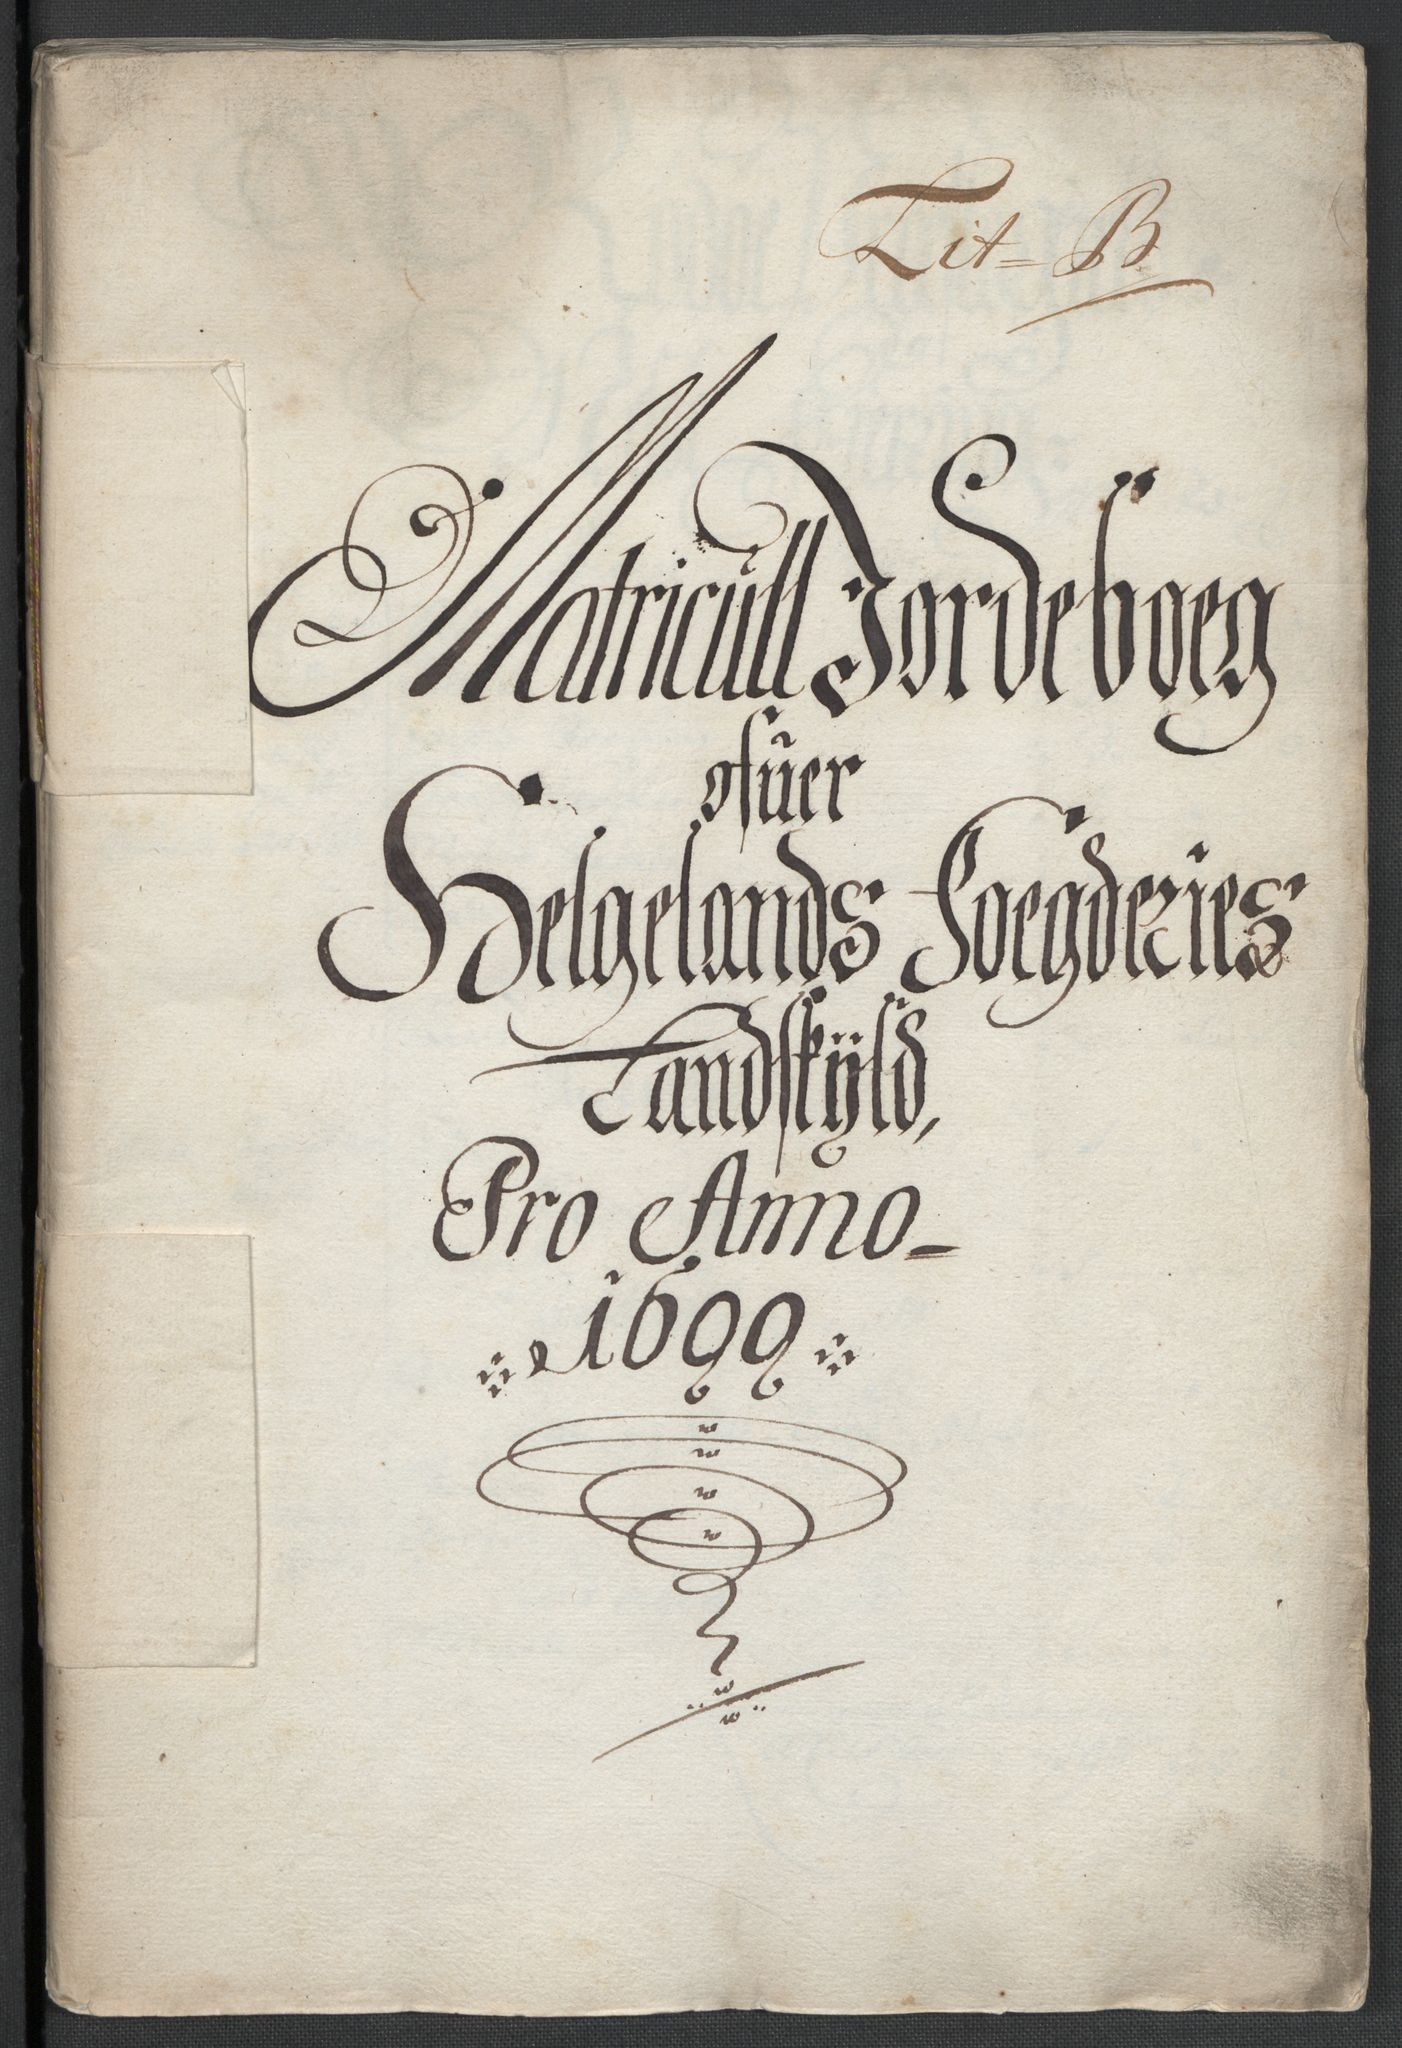 Lit= B
Matricull Jordeboeg
ofuer
Helgelands Foegderies
Landskÿld,
Pro Anno
1699